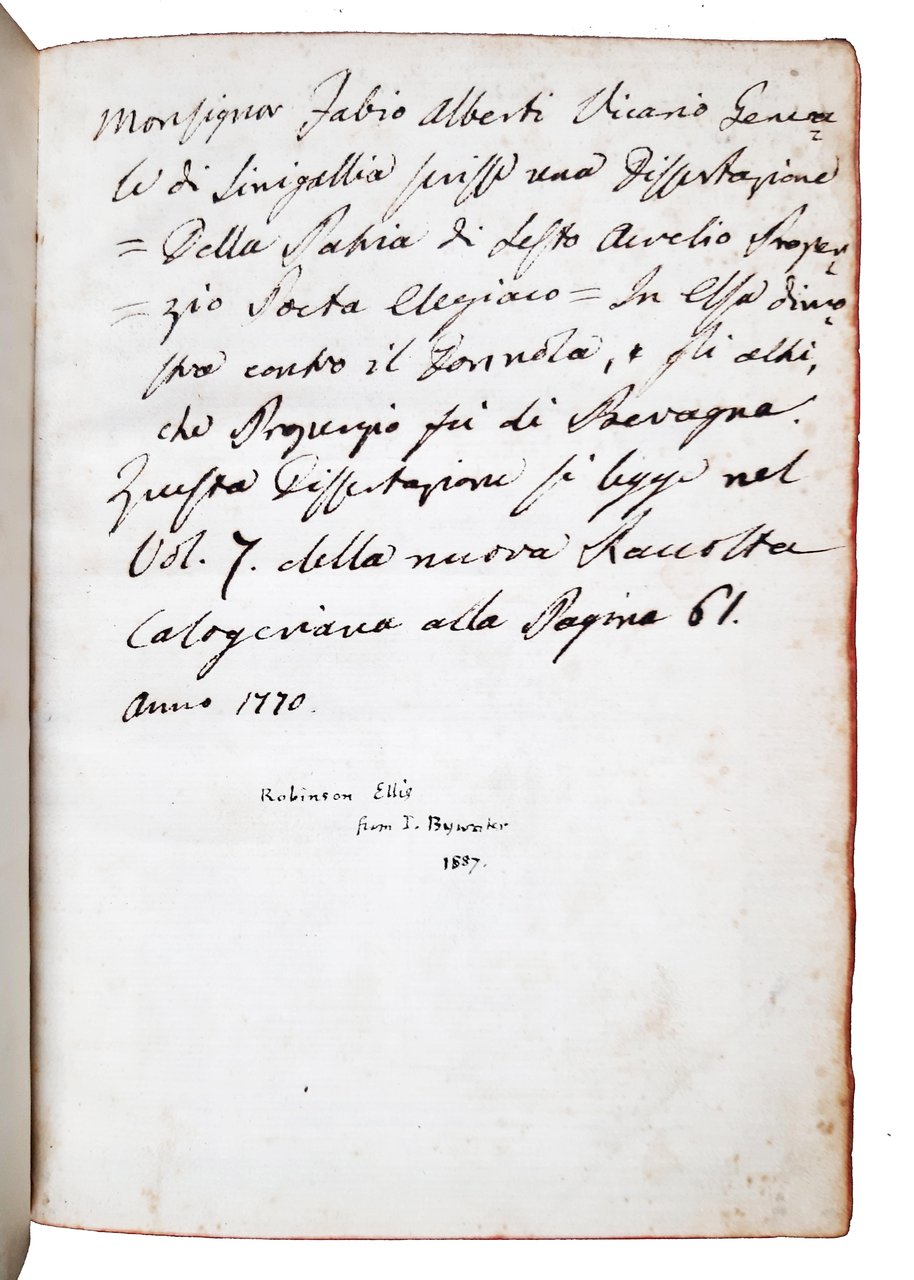 Monsignor Fabio Alberti Vicario Genera=
le di Sinigallia scrisse una Dissertazione
= Della Patria di Sesto Aurelio Proper=
= zio Poeta Elegiaco = In Essa dimo=
stra contro il Donnola, e gli altri,
che Properzio fù di Bevagna.
Questa Dissertazione si legge nel
Vol. 7. della nuova Raccolta
Calogeriana alla Pagina 61.
Anno 1770.
Robinson Ellis
from I. Bywater
1887.